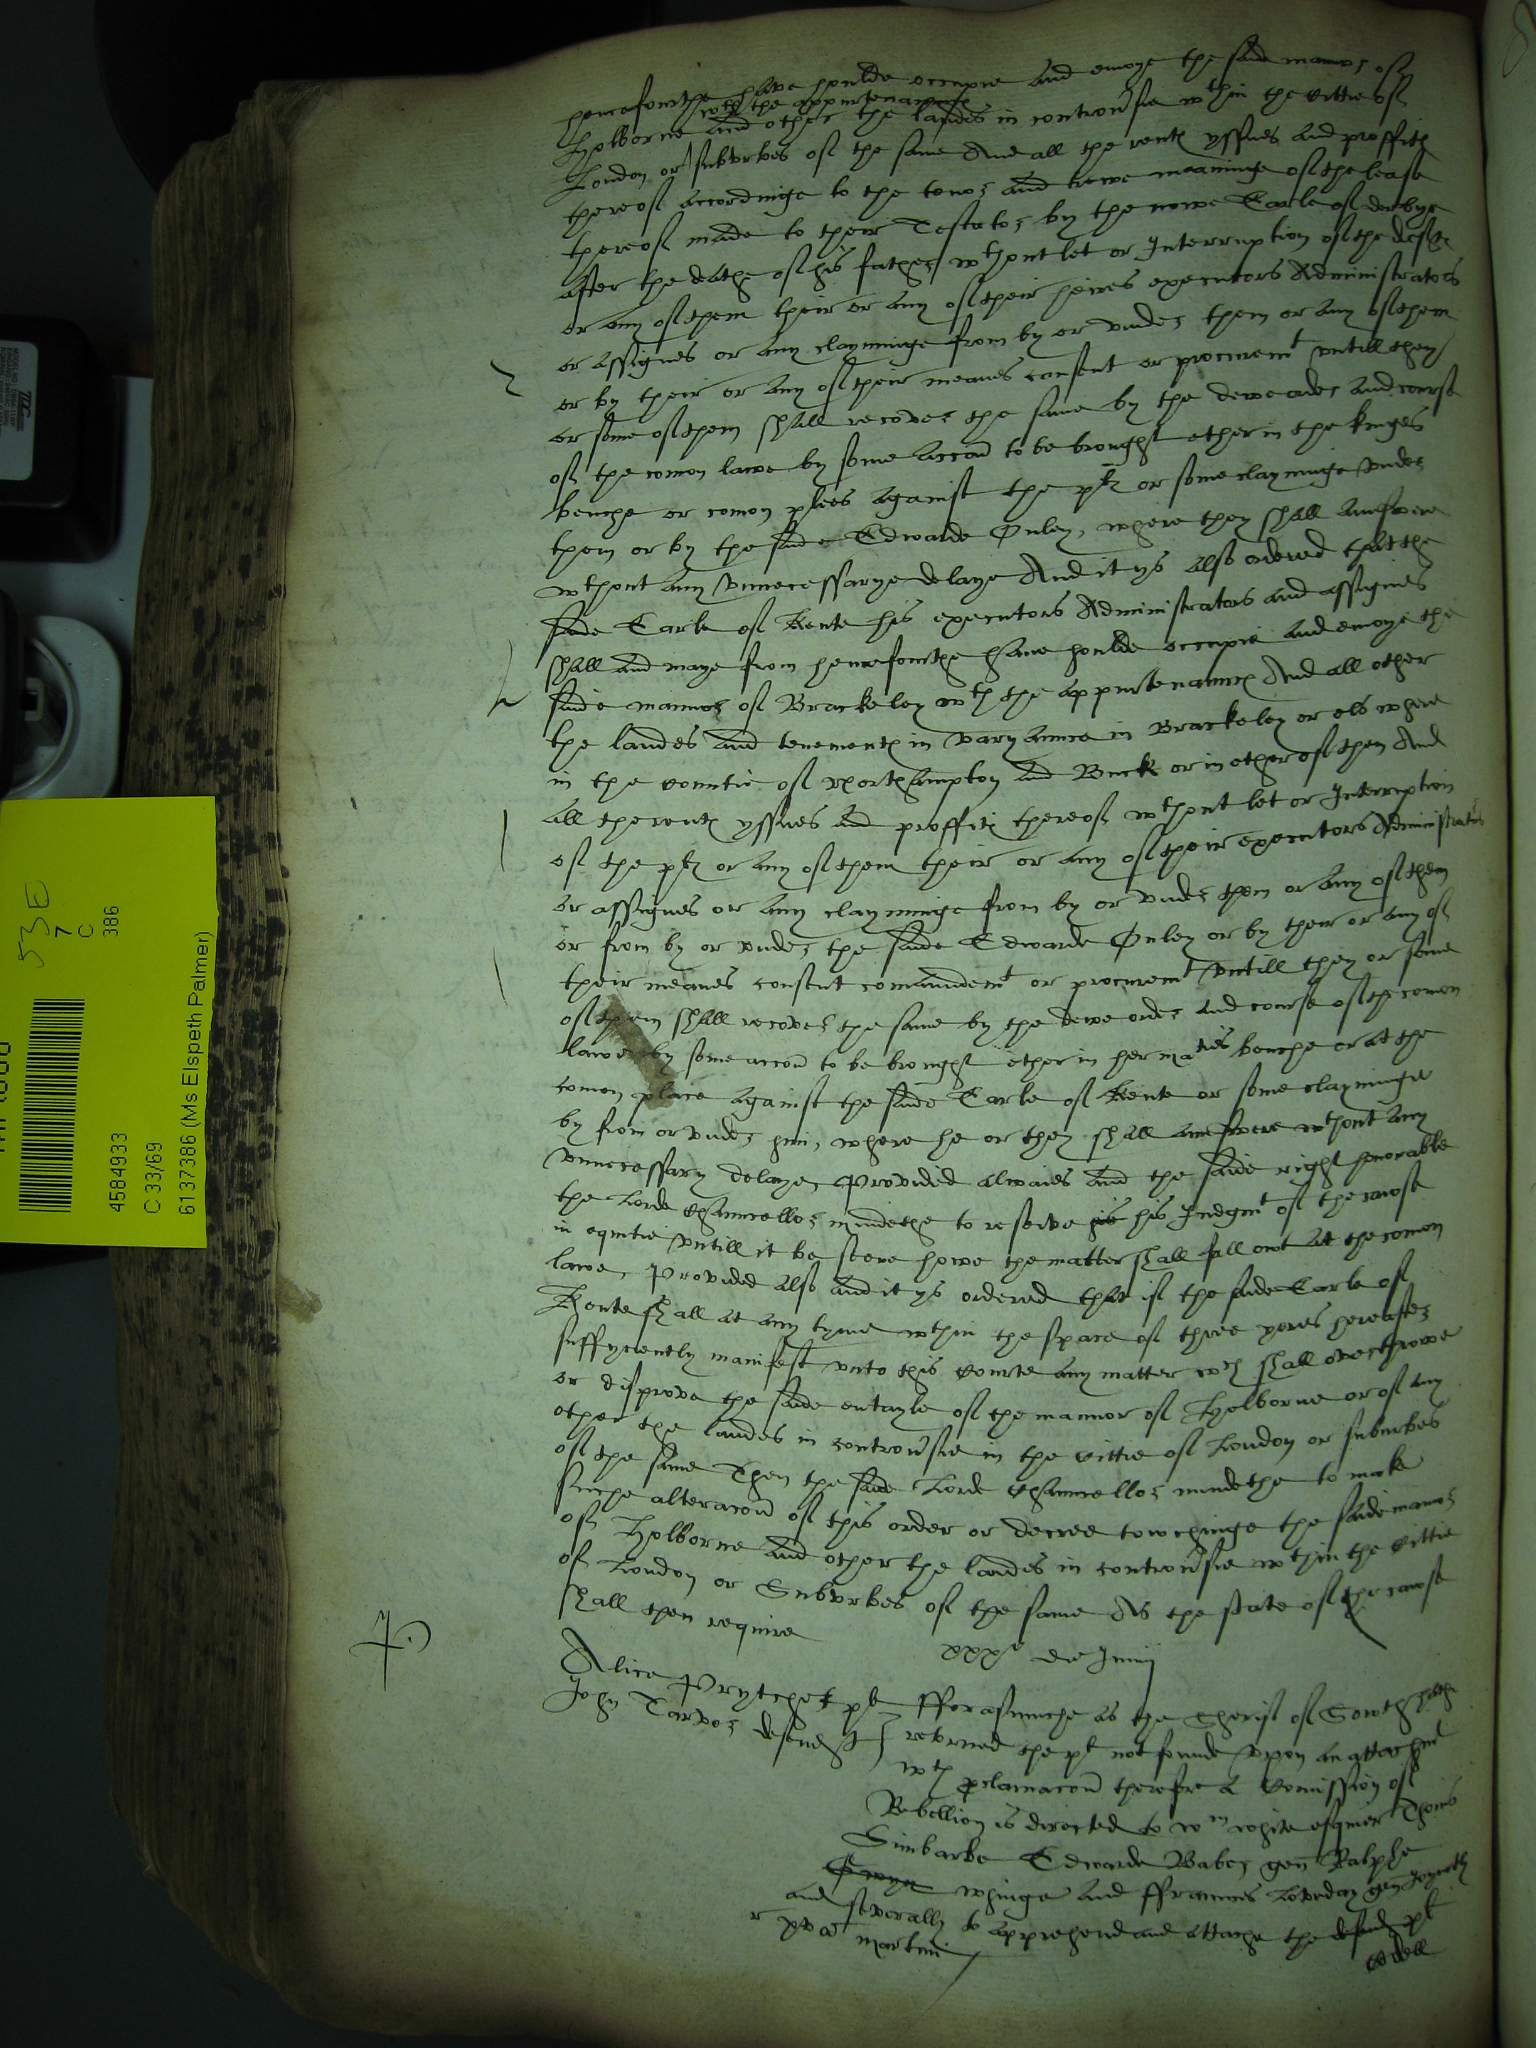 hencefourthe have houlde occupie and enioye the saide mannor of
wth the appurtenances
Holborne and other the landes in controu'sie wthin the Cittie of
London or suburbes of the same And all the rentes yssues and proffites
thereof accordinge to the tenor and trewe meaninge of the lease
thereof made to their Testator by the nowe Earle of derbye
after the deathe of his father wthout let or Interruption of the deftes
or any of them their or any of their heires executors Administrators
or assignes or any clayminge from by or under them or any of them
or by their or any of their meanes consent or procuremt untill they
or some of them shall recover the same by the dewe order and course
of the comon lawe by some accon to be brought ether in the kinges
benche or comon plees against the pltes or some clayminge under
them or by the saide Edwarde Onley, where they shall aunswere
wthout any unnecessarye delaye And it ys also ordered that the
saide Earle of Kente his executors Administrators and assignes
shall and maye from hencefourthe have houlde occupie and enioye the
saide mannor of Brackeley wth the appurtenances And all other
the landes and tenementes in varyaunce in Brackeley or els where
in the countie of Northampton and Buck or in ether of them And
all the rentes yssues and proffites thereof wthout let or Interruption
of the pltes or any of them their or any of their executors Administrators
or assignes or any clayminge from by or under them or any of them
or from by or under the saide Edwarde Onley or by their or any of
their meanes consent comaundemt or procuremt untill they or some
of them shall recover the same by the dewe order and course of the comon
lawe by some accon to be brought ether in her maties benche or at the
comon place against the saide Earle of Kente or some clayminge
by from or under him, where he or they shall aunswere wthout any
unnecessary delaye, Provided alwaies and the saide right honorable
the Lorde Chauncellor mindethe to reserve his his Judgmt of the cawse
in equitie untill it be seene howe the matter shall fall out at the comon
lawe, Provided also and it ys ordered that if the saide Earle of
Kente shall at any tyme wthin the space of three yeres hereafter
suffyciently manifest unto this Courte any matter wch shall overthrowe
or disprove the saide entayle of the mannor of Holborne or of any
other the landes in controu'sie in the Cittie of London or suburbes
of the same Then the saide Lorde Chauncellor mindethe to make
suche alteracon of this order or decree towchinge the saide mannor
of Holborne and other the landes in controu'sie wthin the Cittie
of London or Suburbes of the same As the state of the cawse
shall then require
xxxo die Junij
Alice Prytchet plt
John Carver defendt
fforasmuche as the Sherif of Sowth hathe
retorned the plt not founde upon an attachmt
wth proclamacon therefore a Comission of
Rebellion is directed to Wm white esquier Thoms
Simbarbe Edwarde Baber gen Ralphe
whinge and ffraunces Loveday gen Joyntly
and severally to apprehend and attache the defend plt
r xvao martini
4584933
C 33/69
6137386 (Ms Elspeth Palmer)
53E
7
C
386